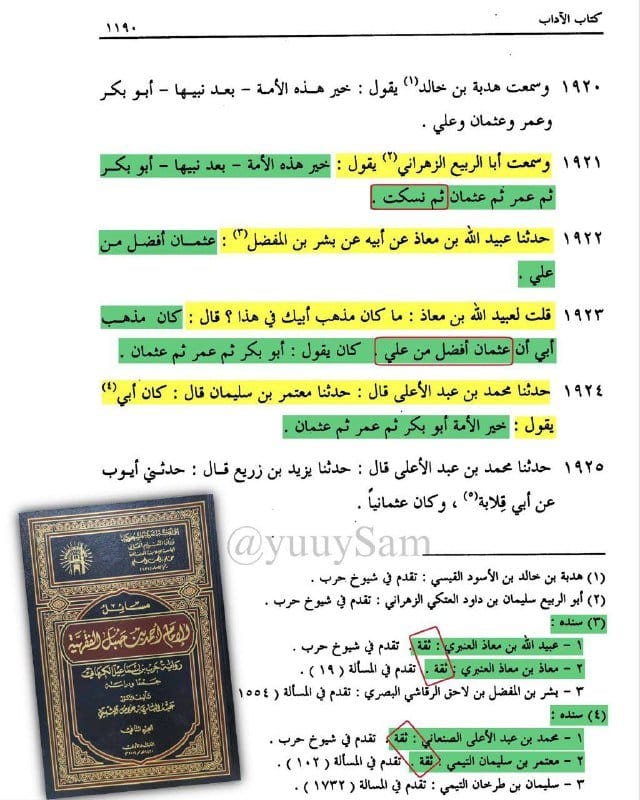 كتاب الآداب
١١٩٠
١٩٢٠ وسمعت هدبة بن خالد(١) يقول : خير هـذه الأمة – بعد نبيها – أبو بكر
وعمر وعثمان وعلي .
١٩٢١ وسمعت أبا الربيع الزهراني(٢) يقول : خير هذه الأمة – بعد نبيها – أبو بكر
ثم عمر ثم عثمان ثم نسكت .
١٩٢٢ حدثنا عبيد الله بن معاذ عن أبيه عن بشر بن المفضل(٣) : عثمـان أفضل مـن
علي .
١٩٢٣ قلت لعبيد الله بن معاذ : ما كان مذهب أبيك في هذا ؟ قال : كان مذهب
أبي أن عثمان أفضل من علي . كان يقول : أبو بكر ثم عمر ثم عثمان .
١٩٢٤ حدثنا محمد بن عبد الأعلى قال : حدثنا معتمر بن سليمان قال : كان أبي(٤)
يقول : خير الأمة أبو بكر ثم عمر ثم عثمان .
١٩٢٥ حدثنا محمد بن عبد الأعلى قال : حدثنا يزيد بن زريع قـال : حدثـني أيـوب
عن أبي قلابة(٥) ، وكان عثمانياً .
@yuuySam
(١) هدبة بن خالد بن الأسود القيسي : تقدم في شيوخ حرب .
(٢) أبو الربيع سليمان بن داود العتكي الزهراني : تقدم في شيوخ حرب .
(٣) سنده :
١ – عبيد الله بن معاذ العنبري : ثقة . تقدم في شيوخ حرب .
٢ – معاذ بن معاذ العنبري : ثقة . تقدم في المسألة ( ١٩ ) .
٣ – بشر بن المفضل بن لاحق الرقاشي البصري : تقدم في المسألة ( ١٥٥٤
(٤) سنده :
١ – محمد بن عبد الأعلى الصنعاني : ثقة . تقدم في شيوخ حرب .
٢ – معتمر بن سليمان التيمي : ثقة . تقدم في المسألة ( ١٠٢ ) .
٣ – سليمان بن طرخان التيمي : تقدم في المسالة ( ١٧٣٢ ) .
مسائل
الإمام أحمد بن حنبل الفقهية
رواية حرب بن إسماعيل الكرماني
جمعا ودراسة
الجزء الثاني